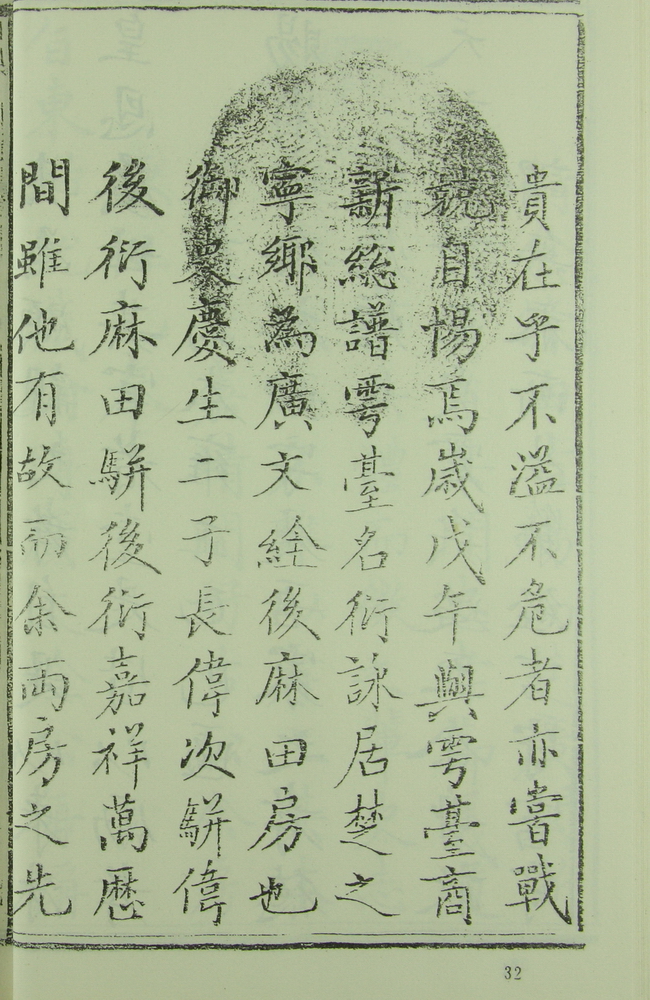 貴在乎不溢不危者亦嘗戰
兢自惕焉歲戊午與雩臺商
新總譜雩臺名衍詠居楚之
寧鄉為廣文銓後麻田房也
御史慶生二子長偉次駢偉
後衍麻田駢後衍嘉祥萬歷
間雖他有故而余兩房之先
32